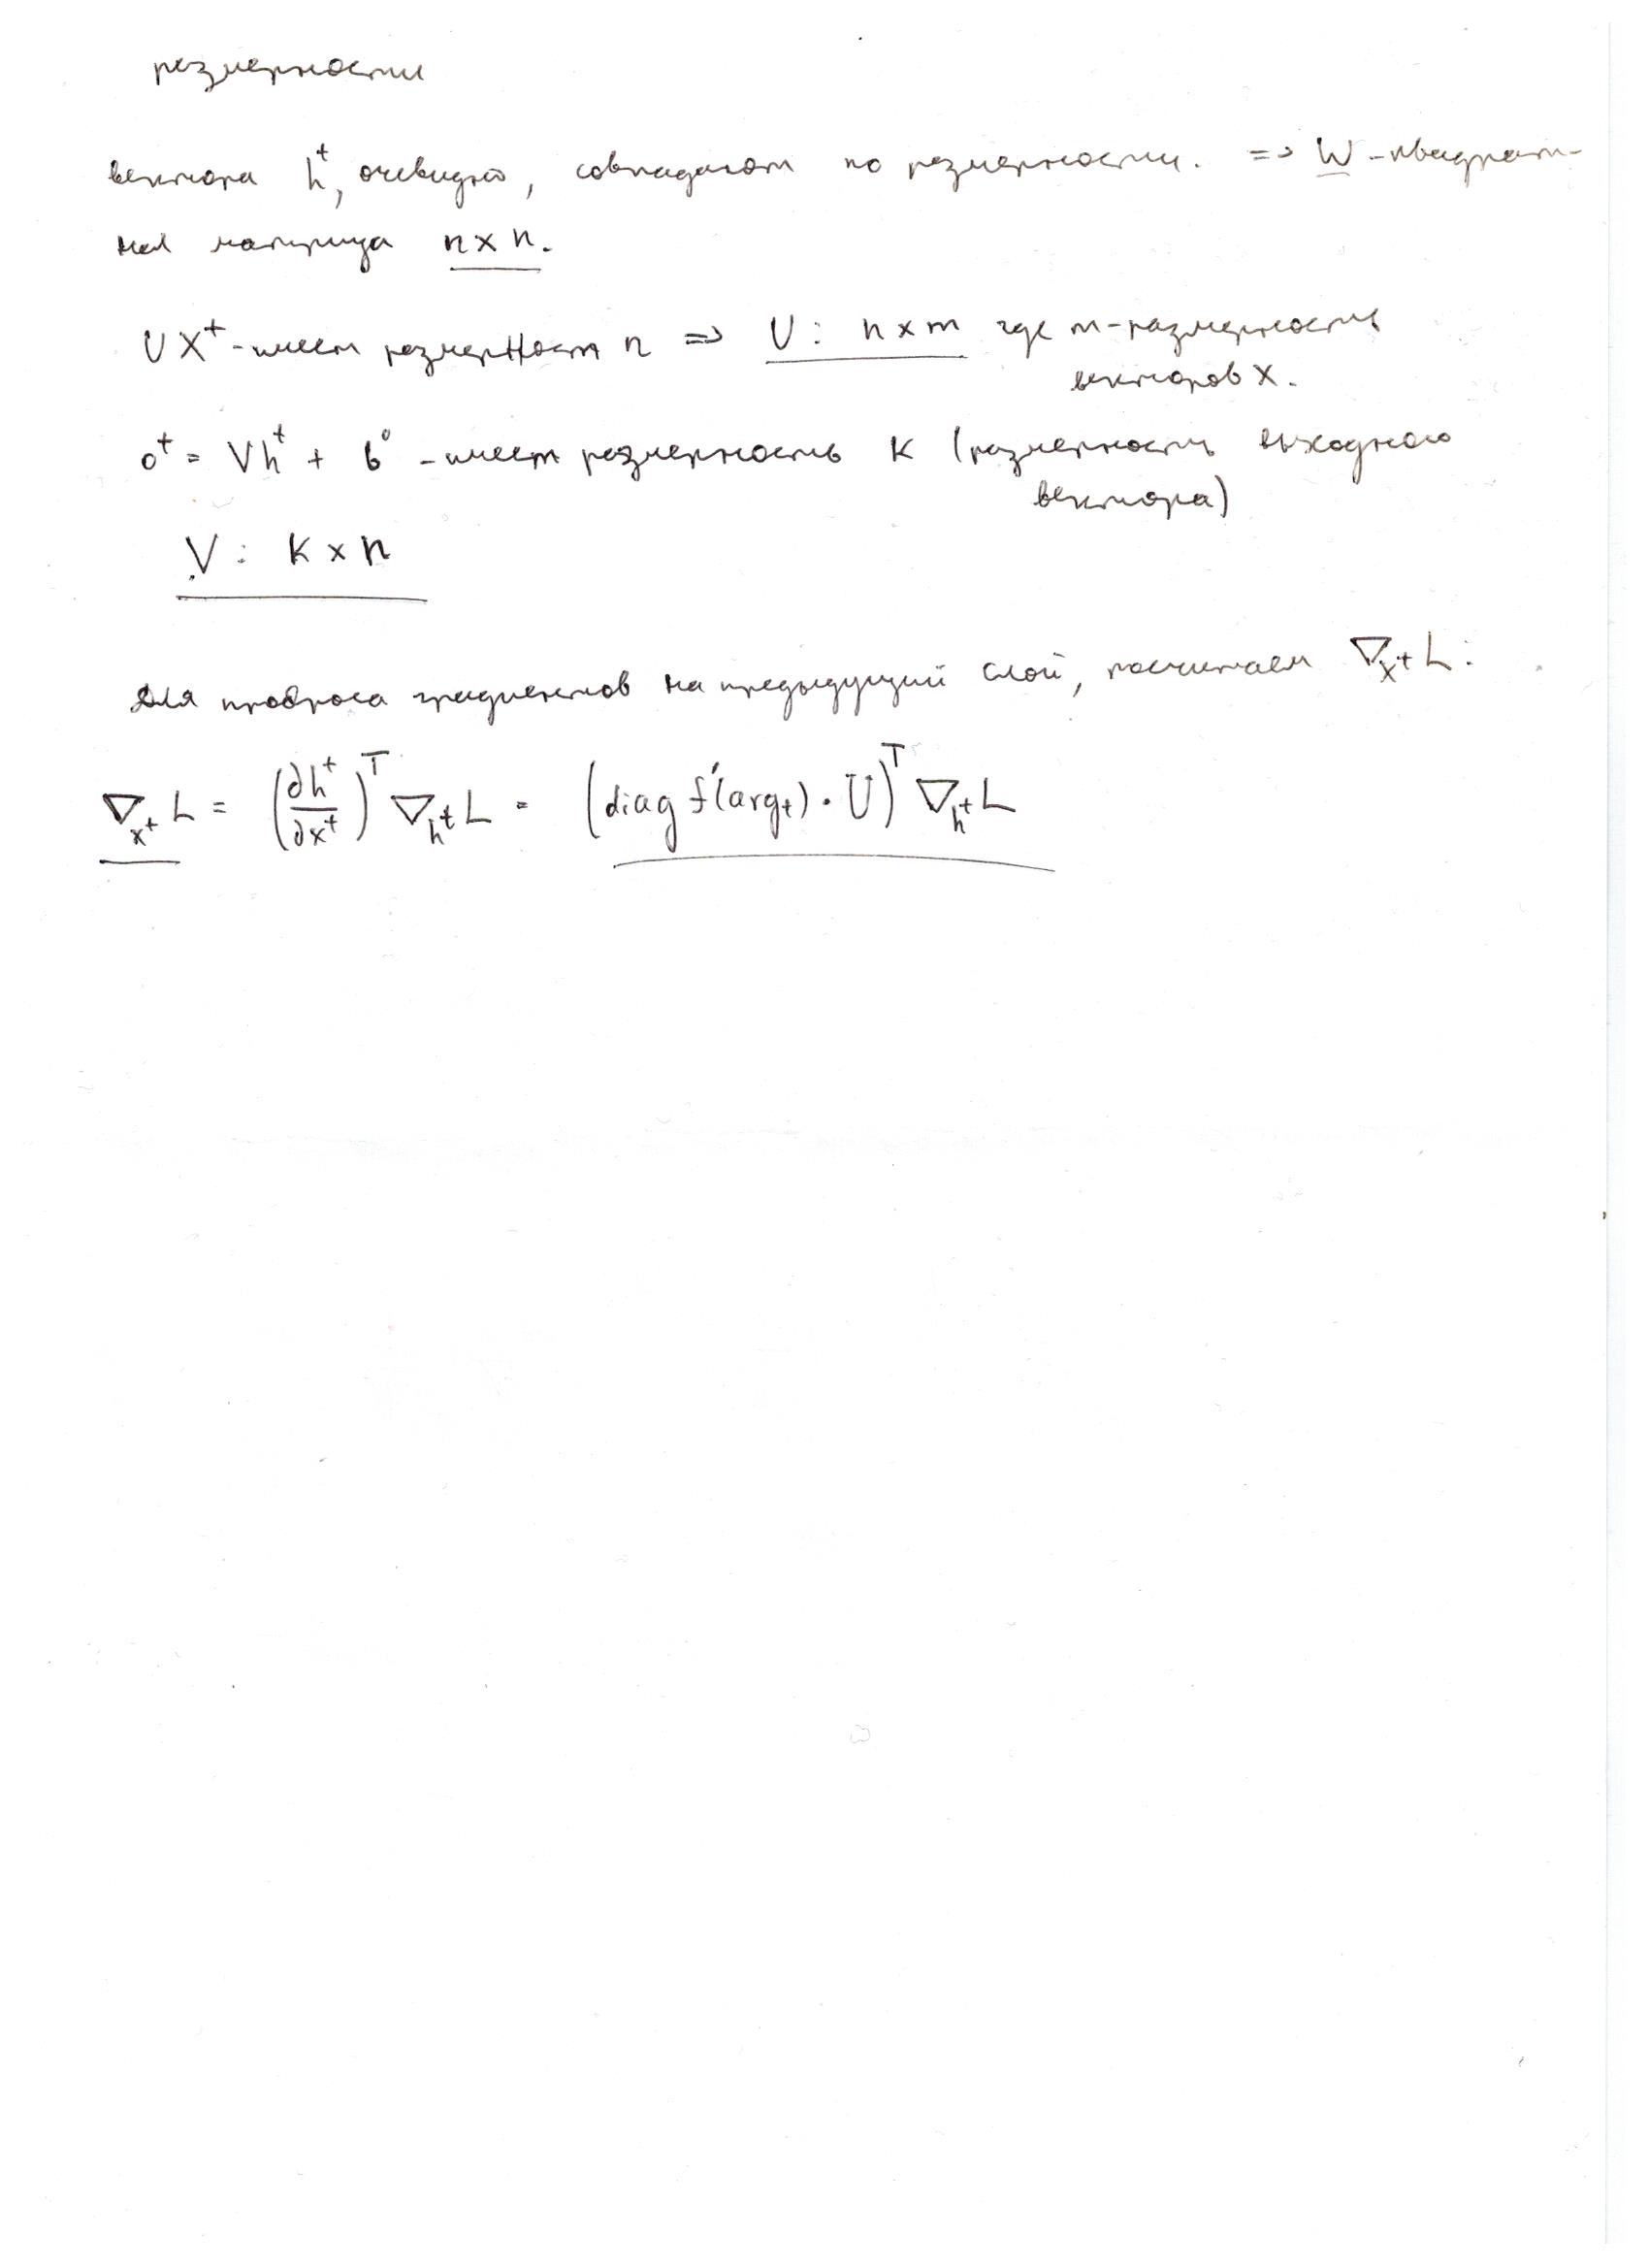 размерности
вектора h^t, очевидно, совпадают по размерности. => W - квадрат-
ная матрица n x n.
UX^t - имеет размерност n => U: n x m где m - размерность
векторов X.
o^t = Vh^t + b^o - имеет размерность K (размерность выходного
вектора)
V: K x n
Для проброса градиентов на предыдущий слой, посчитаем ∇_{x^t} L:
∇_{x^t} L = (∂h^t/∂x^t)^T ∇_{h^t} L = (diag f'(arg_t) · U)^T ∇_{h^t} L